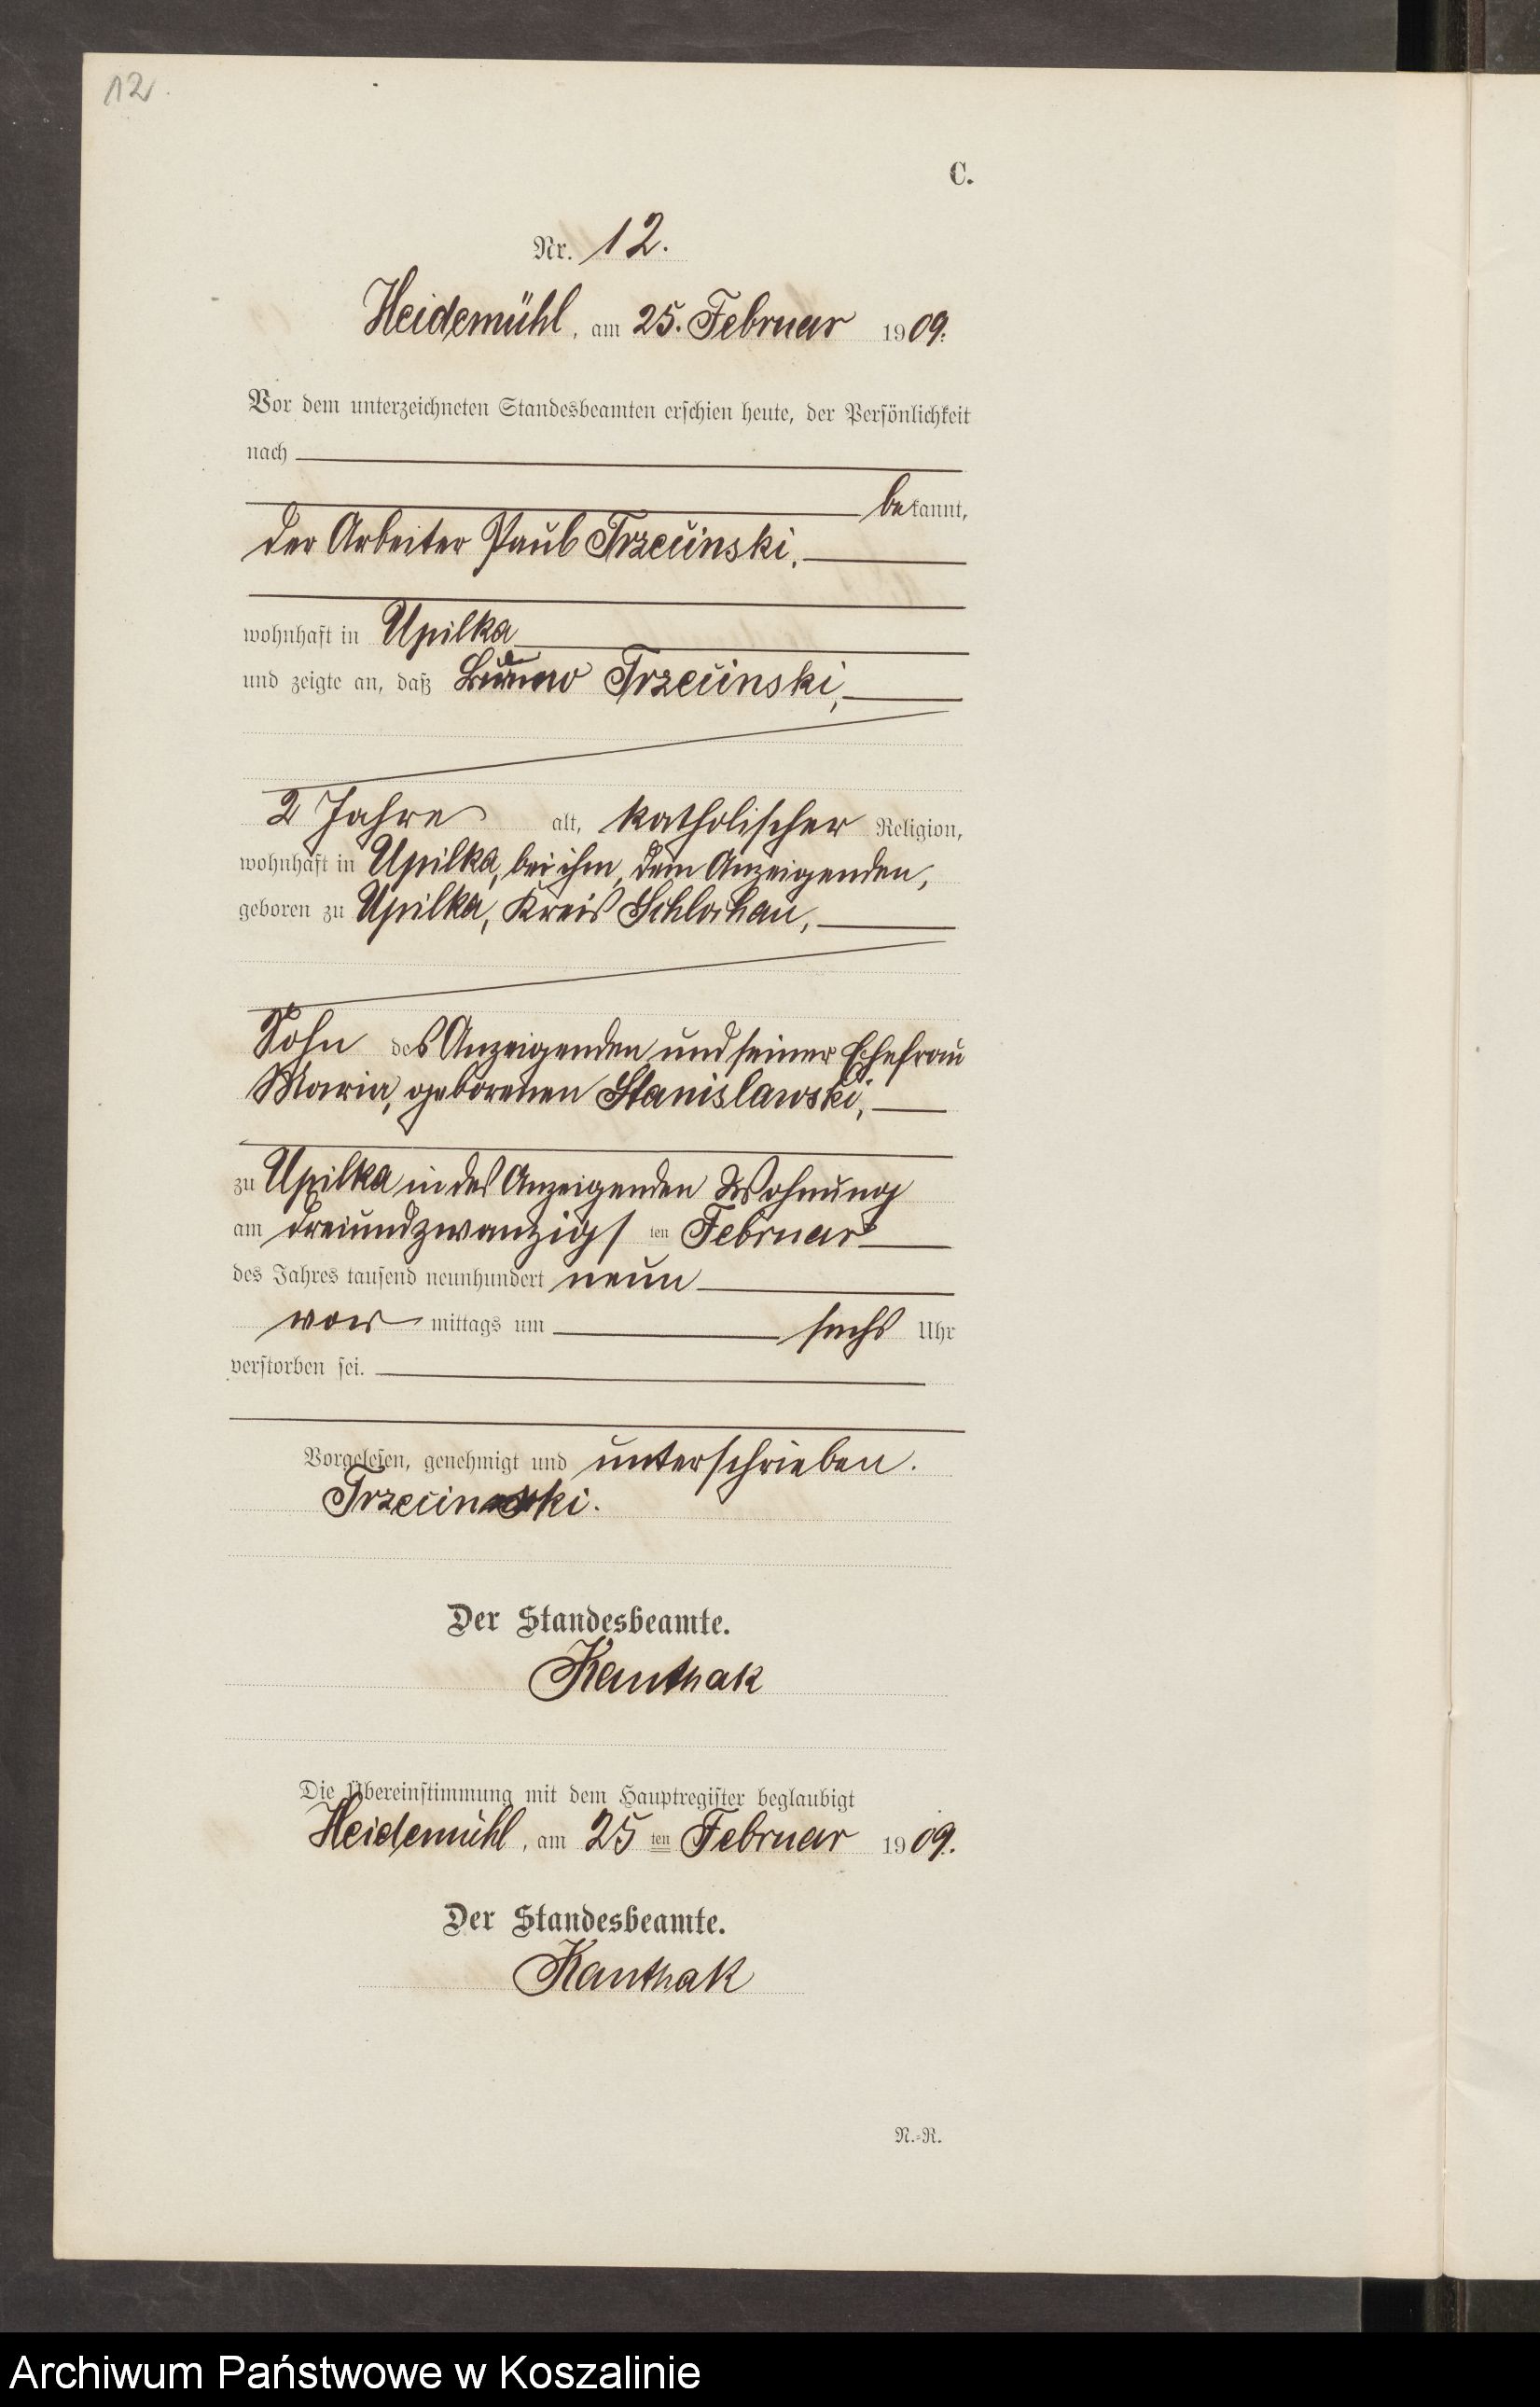 12.
C.
Nr. 12.
Heidemühl, am 25. Februar 1909.
Vor dem unterzeichneten Standesbeamten erschien heute, der Persönlichkeit
nach
bekannt,
der Arbeiter Paul Trzcinski,
wohnhaft in Upilka
und zeigte an, daß Bruno Trzcinski,
2 Jahre alt, katholischer Religion,
wohnhaft in Upilka, bei ihm, dem Anzeigenden,
geboren zu Upilka, Kreis Schlochau,
Sohn des Anzeigenden und seiner Ehefrau
Maria, geborenen Stanislawski,
zu Upilka in des Anzeigenden Wohnung
am dreiundzwanzigsten Februar
des Jahres tausend neunhundert neun
vor mittags um sechs Uhr
verstorben sei.
Vorgelesen, genehmigt und unterschrieben.
Trzcinski.
Der Standesbeamte.
Kanthak
Die Übereinstimmung mit dem Hauptregister beglaubigt
Heidemühl, am 25ten Februar 1909.
Der Standesbeamte.
Kanthak
N.=R.
Archiwum Państwowe w Koszalinie